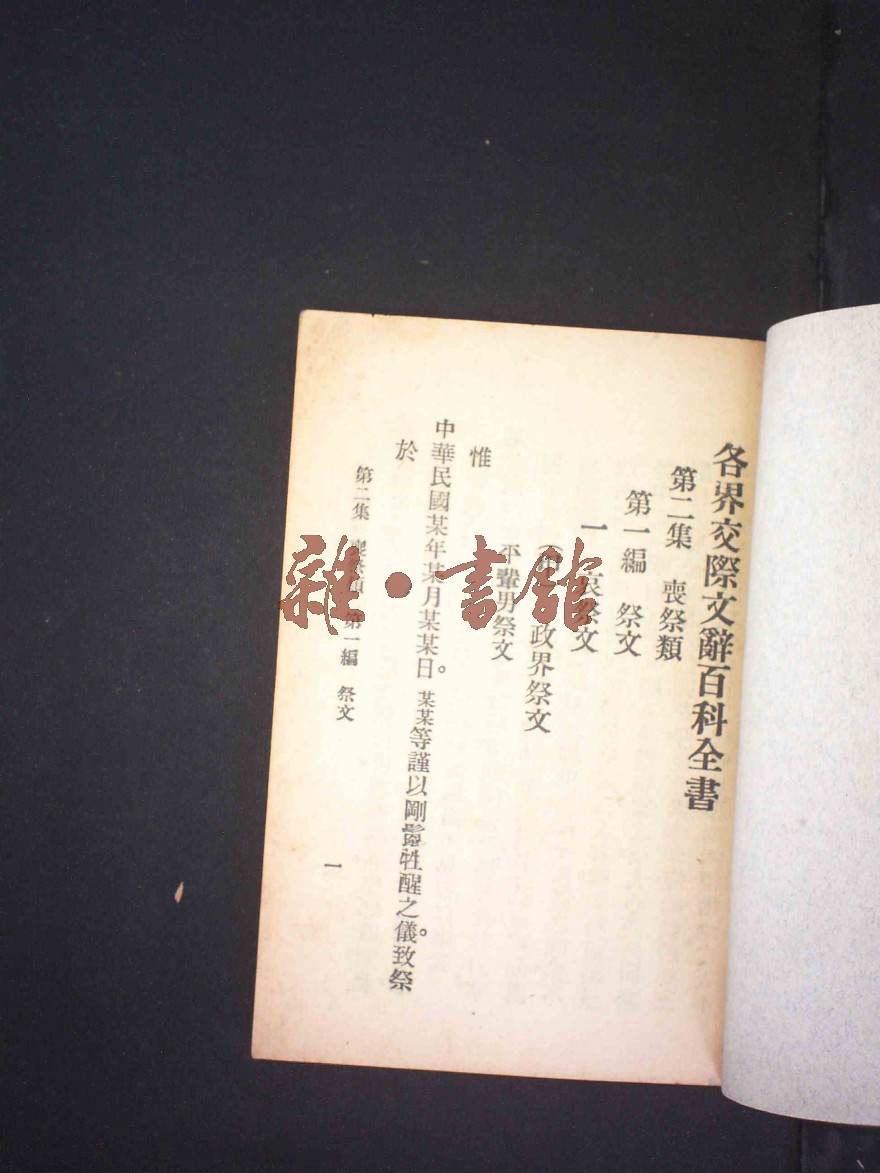 各界交際文辭百科全書
第二集 喪祭類
第一編 祭文
一 哀祭文
政界祭文
平輩男祭文
惟
中華民國某年某月某某日。某某等謹以剛鬣牲醒之儀。致祭
於
第二集 喪祭類 第一編 祭文
一
雜·書館